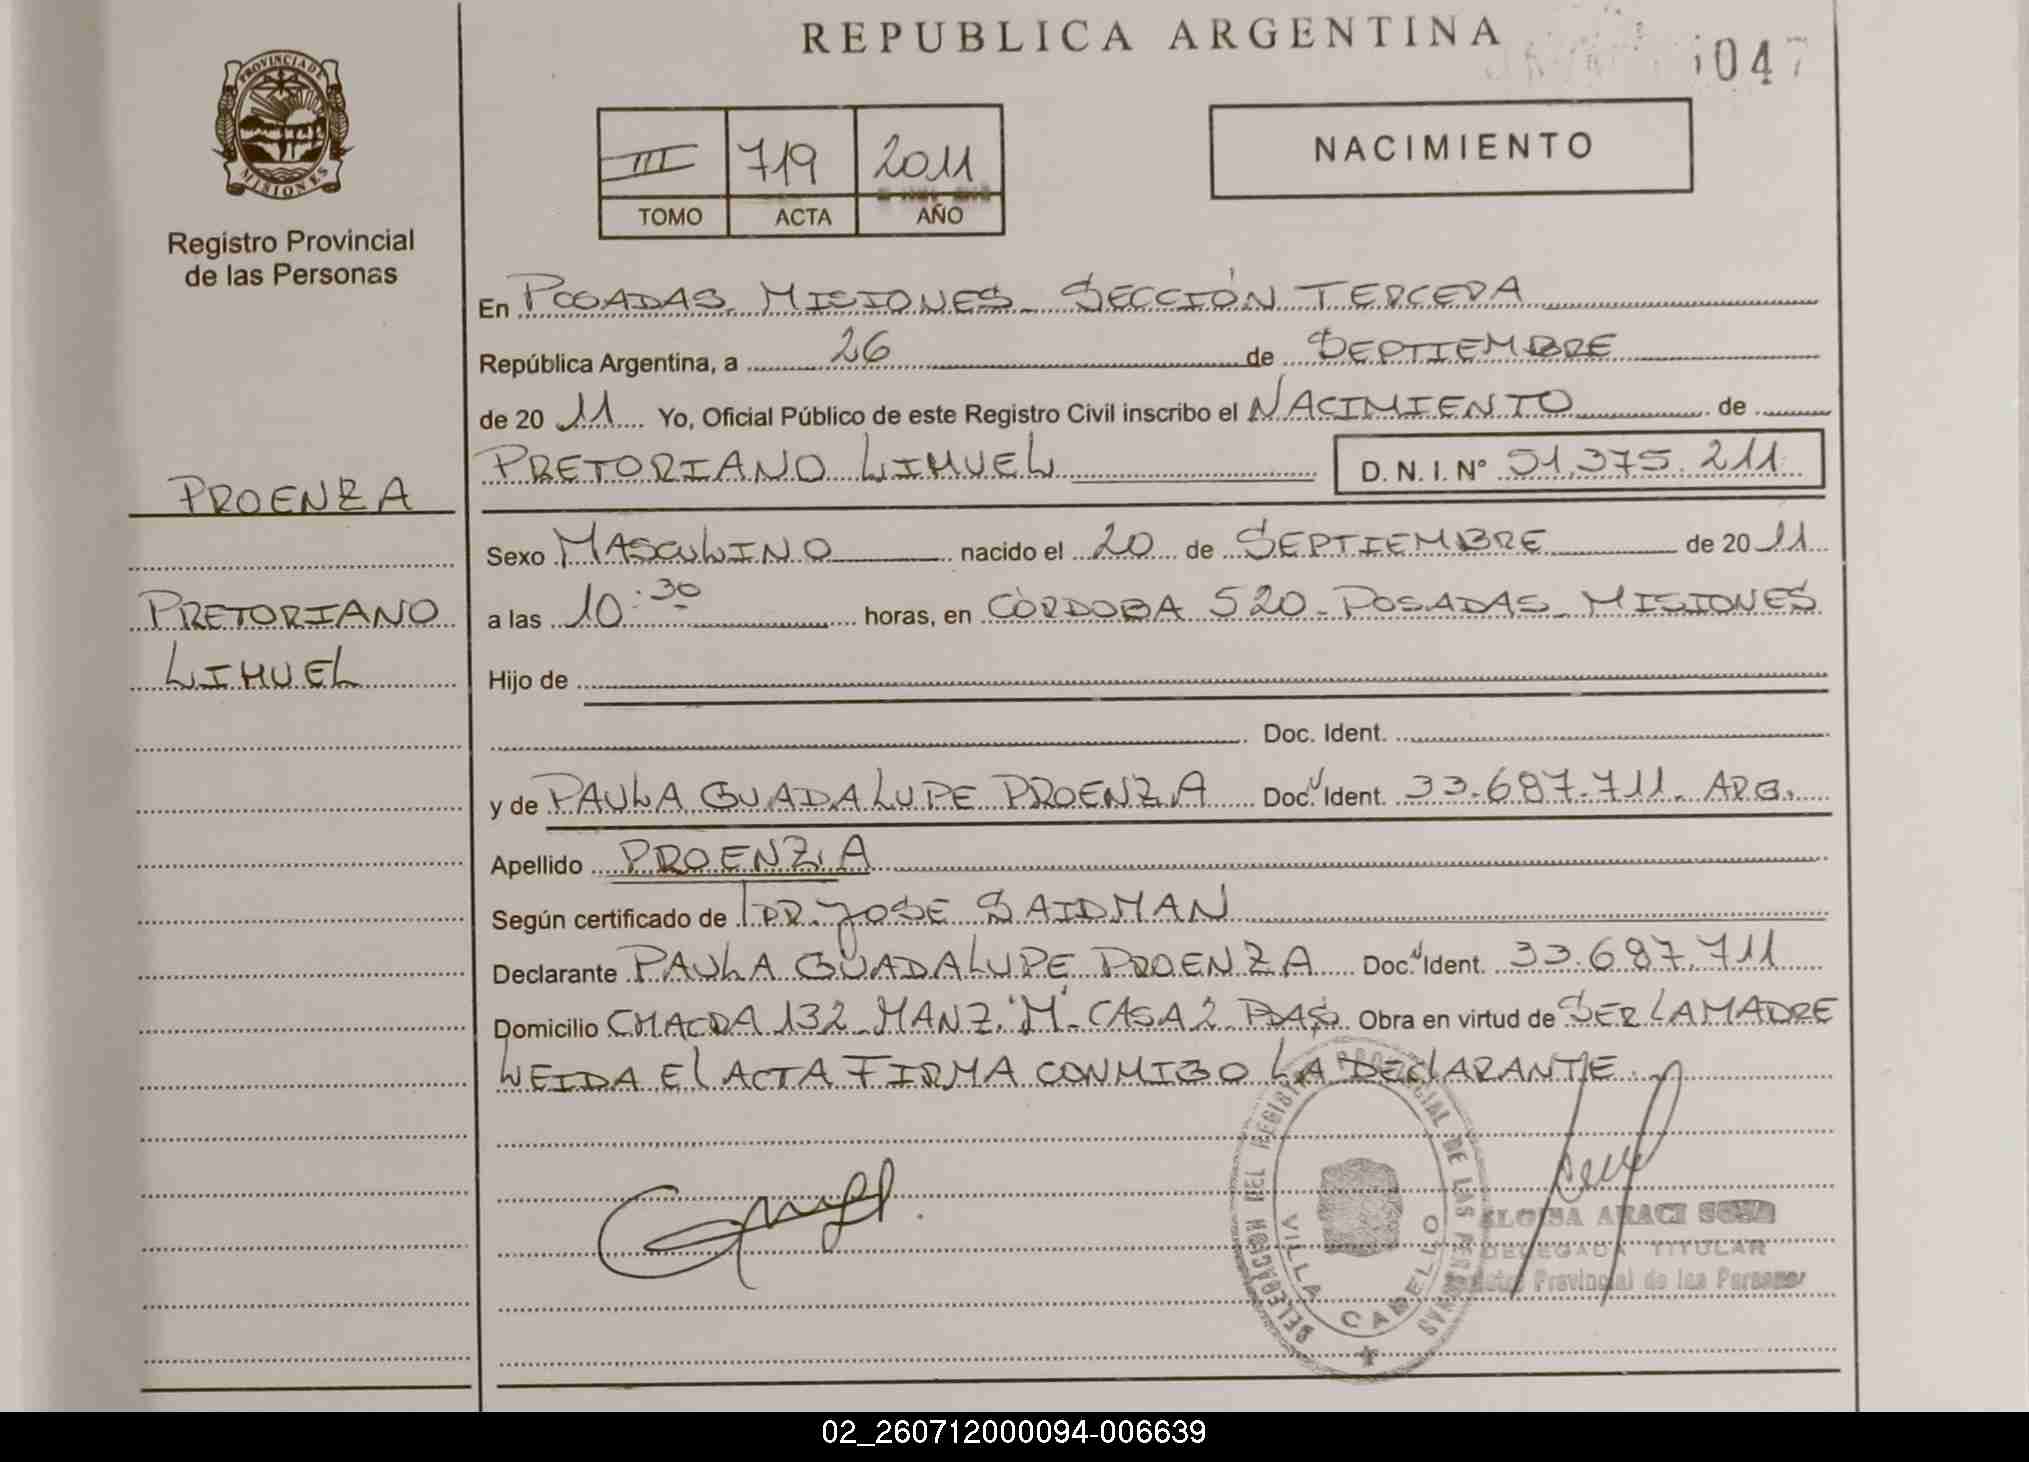 REPUBLICA ARGENTINA
047
PROVINCIA DE
MISIONES
Registro Provincial
de las Personas
III 719 2011
TOMO ACTA AÑO
NACIMIENTO
En POSADAS MISIONES SECCIÓN TERCERA
República Argentina, a 26 de SEPTIEMBRE
de 20 11 Yo, Oficial Público de este Registro Civil inscribo el NACIMIENTO de
PRETORIANO LIHUEL D. N. I. Nº 51.375.211
PROENZA
PRETORIANO
LIHUEL
Sexo MASCULINO nacido el 20 de SEPTIEMBRE de 20 11
a las 10:30 horas, en CÓRDOBA 520 - POSADAS - MISIONES
Hijo de
Doc. Ident.
y de PAULA GUADALUPE PROENZA Doc. Ident. 33.687.711 - ARG.
Apellido PROENZA
Según certificado de DR. JOSE SAIDMAN
Declarante PAULA GUADALUPE PROENZA Doc. Ident. 33.687.711
Domicilio CHACRA 132 - MANZ. "M" - CASA 2 PDAS Obra en virtud de SER LA MADRE
LEIDA EL ACTA FIRMA CONMIGO LA DECLARANTE
DELEGACION DEL REGISTRO PROVINCIAL DE LAS PERSONAS
VILLA CABELLO
ELOISA ARACI SOSA
DELEGADA TITULAR
Provincial de las Personas
02_260712000094-006639